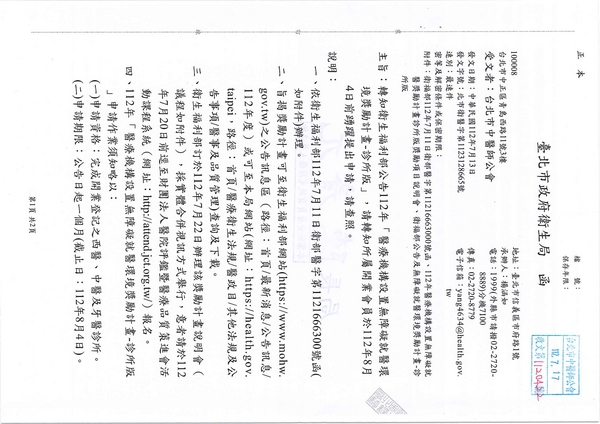 正本
檔 號：
保存年限：
臺北市政府衛生局 函
地址：臺北市信義區市府路1號
承辦人：楊涵如
電話：1999(外縣市請撥02-2720-8889)分機7100
傳真：02-2720-8779
電子信箱：yang4634@health.gov.tw
100008
台北市中正區青島西路11號3樓
受文者：台北市中醫師公會
發文日期：中華民國112年7月13日
發文字號：北市衛醫字第1123128665號
速別：最速件
密等及解密條件或保密期限：
附件：衛福部112年7月11日衛部醫字第1121666300號函、112年醫療機構設置無障礙就
醫獎勵計畫診所版獎勵項目說明會、衛福部公告及無障礙就醫環境獎勵計畫-診
所版
主旨：轉知衛生福利部公告112年「醫療機構設置無障礙就醫環
境獎勵計畫-診所版」，請轉知所屬開業會員於112年8月
4日前踴躍提出申請，請查照。
說明：
一、依衛生福利部112年7月11日衛部醫字第1121666300號函(
如附件)辦理。
二、旨揭獎勵計畫可至衛生福利部網站(https://www.mohw.
gov.tw)之公告訊息區（路徑：首頁/最新消息/公告訊息/
112年度）或可至本局網站(網址：https://health.gov.
taipei，路徑：首頁/醫療衛生法規/醫政目/其他法規及公
告事項/醫事及品質管理)查詢及下載。
三、衛生福利部訂於112年7月22日辦理該獎勵計畫說明會（
議程如附件），採實體合併視訊方式舉行，意者請於112
年7月20日前逕至財團法人醫院評鑑暨醫療品質策進會活
動課程系統（網址：http://attend.jct.org.tw/）報名。
四、112年「醫療機構設置無障礙就醫環境獎勵計畫-診所版
」申請作業須知略以：
(一)申請資格：完成開業登記之西醫、中醫及牙醫診所。
(二)申請期限：公告日起一個月(截止日：112年8月4日)。
第1頁 共2頁
台北市中醫師公會
112. 7. 17
收文第